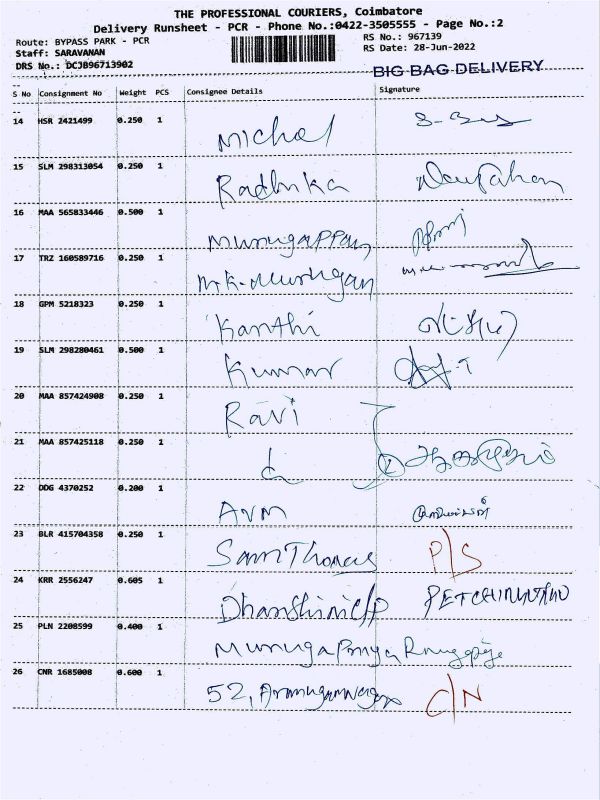 THE PROFESSIONAL COURIERS, Coimbatore
Delivery Runsheet - PCR - Phone No.:0422-3505555 - Page No.:2
Route: BYPASS PARK - PCR
RS No.: 967139
Staff: SARAVANAN
RS Date: 28-Jun-2022
DRS No.: DCJB96713902
BIG BAG DELIVERY
S No Consignment No Weight PCS Consignee Details Signature
14 HSR 2421499 0.250 1 Michal
15 SLM 298313054 0.250 1 Radhika
16 MAA 565833446 0.500 1 Murugappan
17 TRZ 160589716 0.250 1 M.K-Murugan
18 GPM 5218323 0.250 1 Kanthi
19 SLM 298280461 0.500 1 Kumar
20 MAA 857424908 0.250 1 Ravi
21 MAA 857425118 0.250 1 2
22 DDG 4370252 0.200 1 AVM
23 BLR 415704358 0.250 1 Sam Thomas P/S
24 KRR 2556247 0.605 1
25 PLN 2208599 0.400 1
26 CNR 1685008 0.600 1 52, C/N